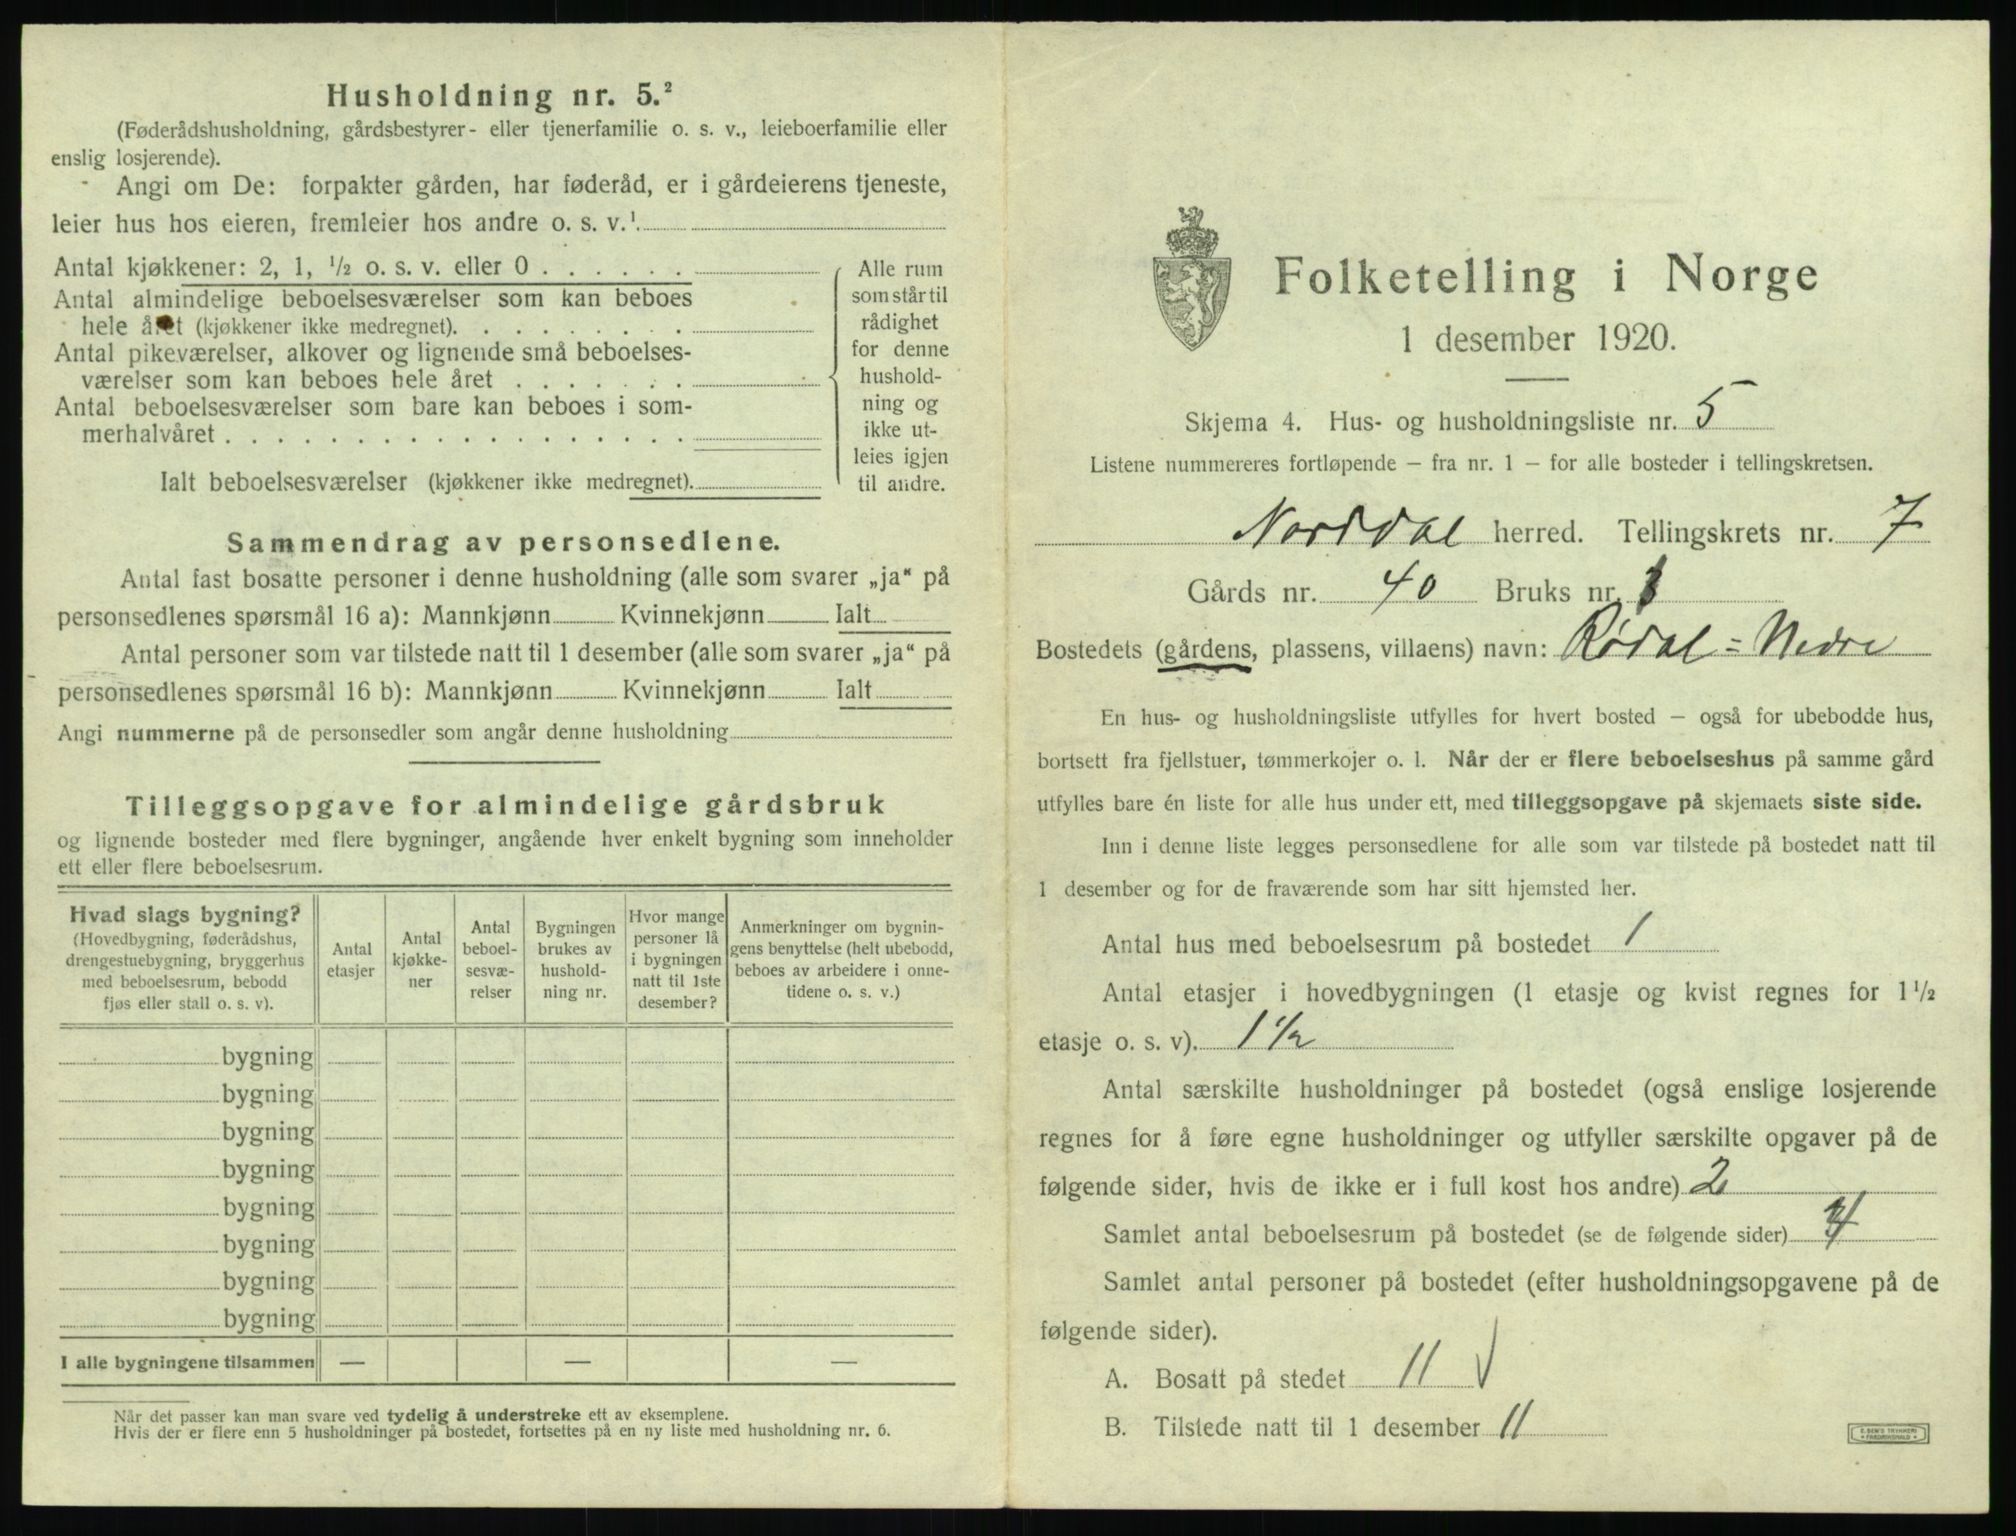 Husholdning nr. 5.²
(Føderådshusholdning, gårdsbestyrer- eller tjenerfamilie o. s. v., leieboerfamilie eller
enslig losjerende).
Angi om De: forpakter gården, har føderåd, er i gårdeierens tjeneste,
leier hus hos eieren, fremleier hos andre o. s. v.¹
Antal kjøkkener: 2, 1, ½ o. s. v. eller 0
Antal almindelige beboelsesværelser som kan beboes
hele året (kjøkkener ikke medregnet).
Antal pikeværelser, alkover og lignende små beboelses-
værelser som kan beboes hele året
Antal beboelsesværelser som bare kan beboes i som-
merhalvåret
Alle rum
som står til
rådighet
for denne
hushold-
ning og
ikke ut-
leies igjen
til andre.
Ialt beboelsesværelser (kjøkkener ikke medregnet).
Sammendrag av personsedlene.
Antal fast bosatte personer i denne husholdning (alle som svarer „ja“ på
personsedlenes spørsmål 16 a): Mannkjønn Kvinnekjønn Ialt
Antal personer som var tilstede natt til 1 desember (alle som svarer „ja“ på
personsedlenes spørsmål 16 b): Mannkjønn Kvinnekjønn Ialt
Angi nummerne på de personsedler som angår denne husholdning
Tilleggsopgave for almindelige gårdsbruk
og lignende bosteder med flere bygninger, angående hver enkelt bygning som inneholder
ett eller flere beboelsesrum.
Hvad slags bygning?
(Hovedbygning, føderådshus,
drengestuebygning, bryggerhus
med beboelsesrum, bebodd
fjøs eller stall o. s. v).
Antal
etasjer
Antal
kjøkke-
ner
Antal
beboel-
sesvæ-
relser
Bygningen
brukes av
hushold-
ning nr.
Hvor mange
personer lå
i bygningen
natt til 1ste
desember?
Anmerkninger om bygnin-
gens benyttelse (helt ubebodd,
beboes av arbeidere i onne-
tidene o. s. v.)
bygning
bygning
bygning
bygning
bygning
bygning
bygning
bygning
I alle bygningene tilsammen — — —
Når det passer kan man svare ved tydelig å understreke ett av eksemplene.
Hvis der er flere enn 5 husholdninger på bostedet, fortsettes på en ny liste med husholdning nr. 6.
Folketelling i Norge
1 desember 1920.
Skjema 4. Hus- og husholdningsliste nr. 5
Listene nummereres fortløpende – fra nr. 1 – for alle bosteder i tellingskretsen.
Norddal herred. Tellingskrets nr. 7
Gårds nr. 40 Bruks nr.
Bostedets (gårdens, plassens, villaens) navn: Rødal = Nedre
En hus- og husholdningsliste utfylles for hvert bosted – også for ubebodde hus,
bortsett fra fjellstuer, tømmerkojer o. l. Når der er flere beboelseshus på samme gård
utfylles bare én liste for alle hus under ett, med tilleggsopgave på skjemaets siste side.
Inn i denne liste legges personsedlene for alle som var tilstede på bostedet natt til
1 desember og for de fraværende som har sitt hjemsted her.
Antal hus med beboelsesrum på bostedet 1
Antal etasjer i hovedbygningen (1 etasje og kvist regnes for 1 ½
etasje o. s. v). 1 ½
Antal særskilte husholdninger på bostedet (også enslige losjerende
regnes for å føre egne husholdninger og utfyller særskilte opgaver på de
følgende sider, hvis de ikke er i full kost hos andre) 2
Samlet antal beboelsesrum på bostedet (se de følgende sider) 4
Samlet antal personer på bostedet (efter husholdningsopgavene på de
følgende sider).
A. Bosatt på stedet 11 √
B. Tilstede natt til 1 desember 11